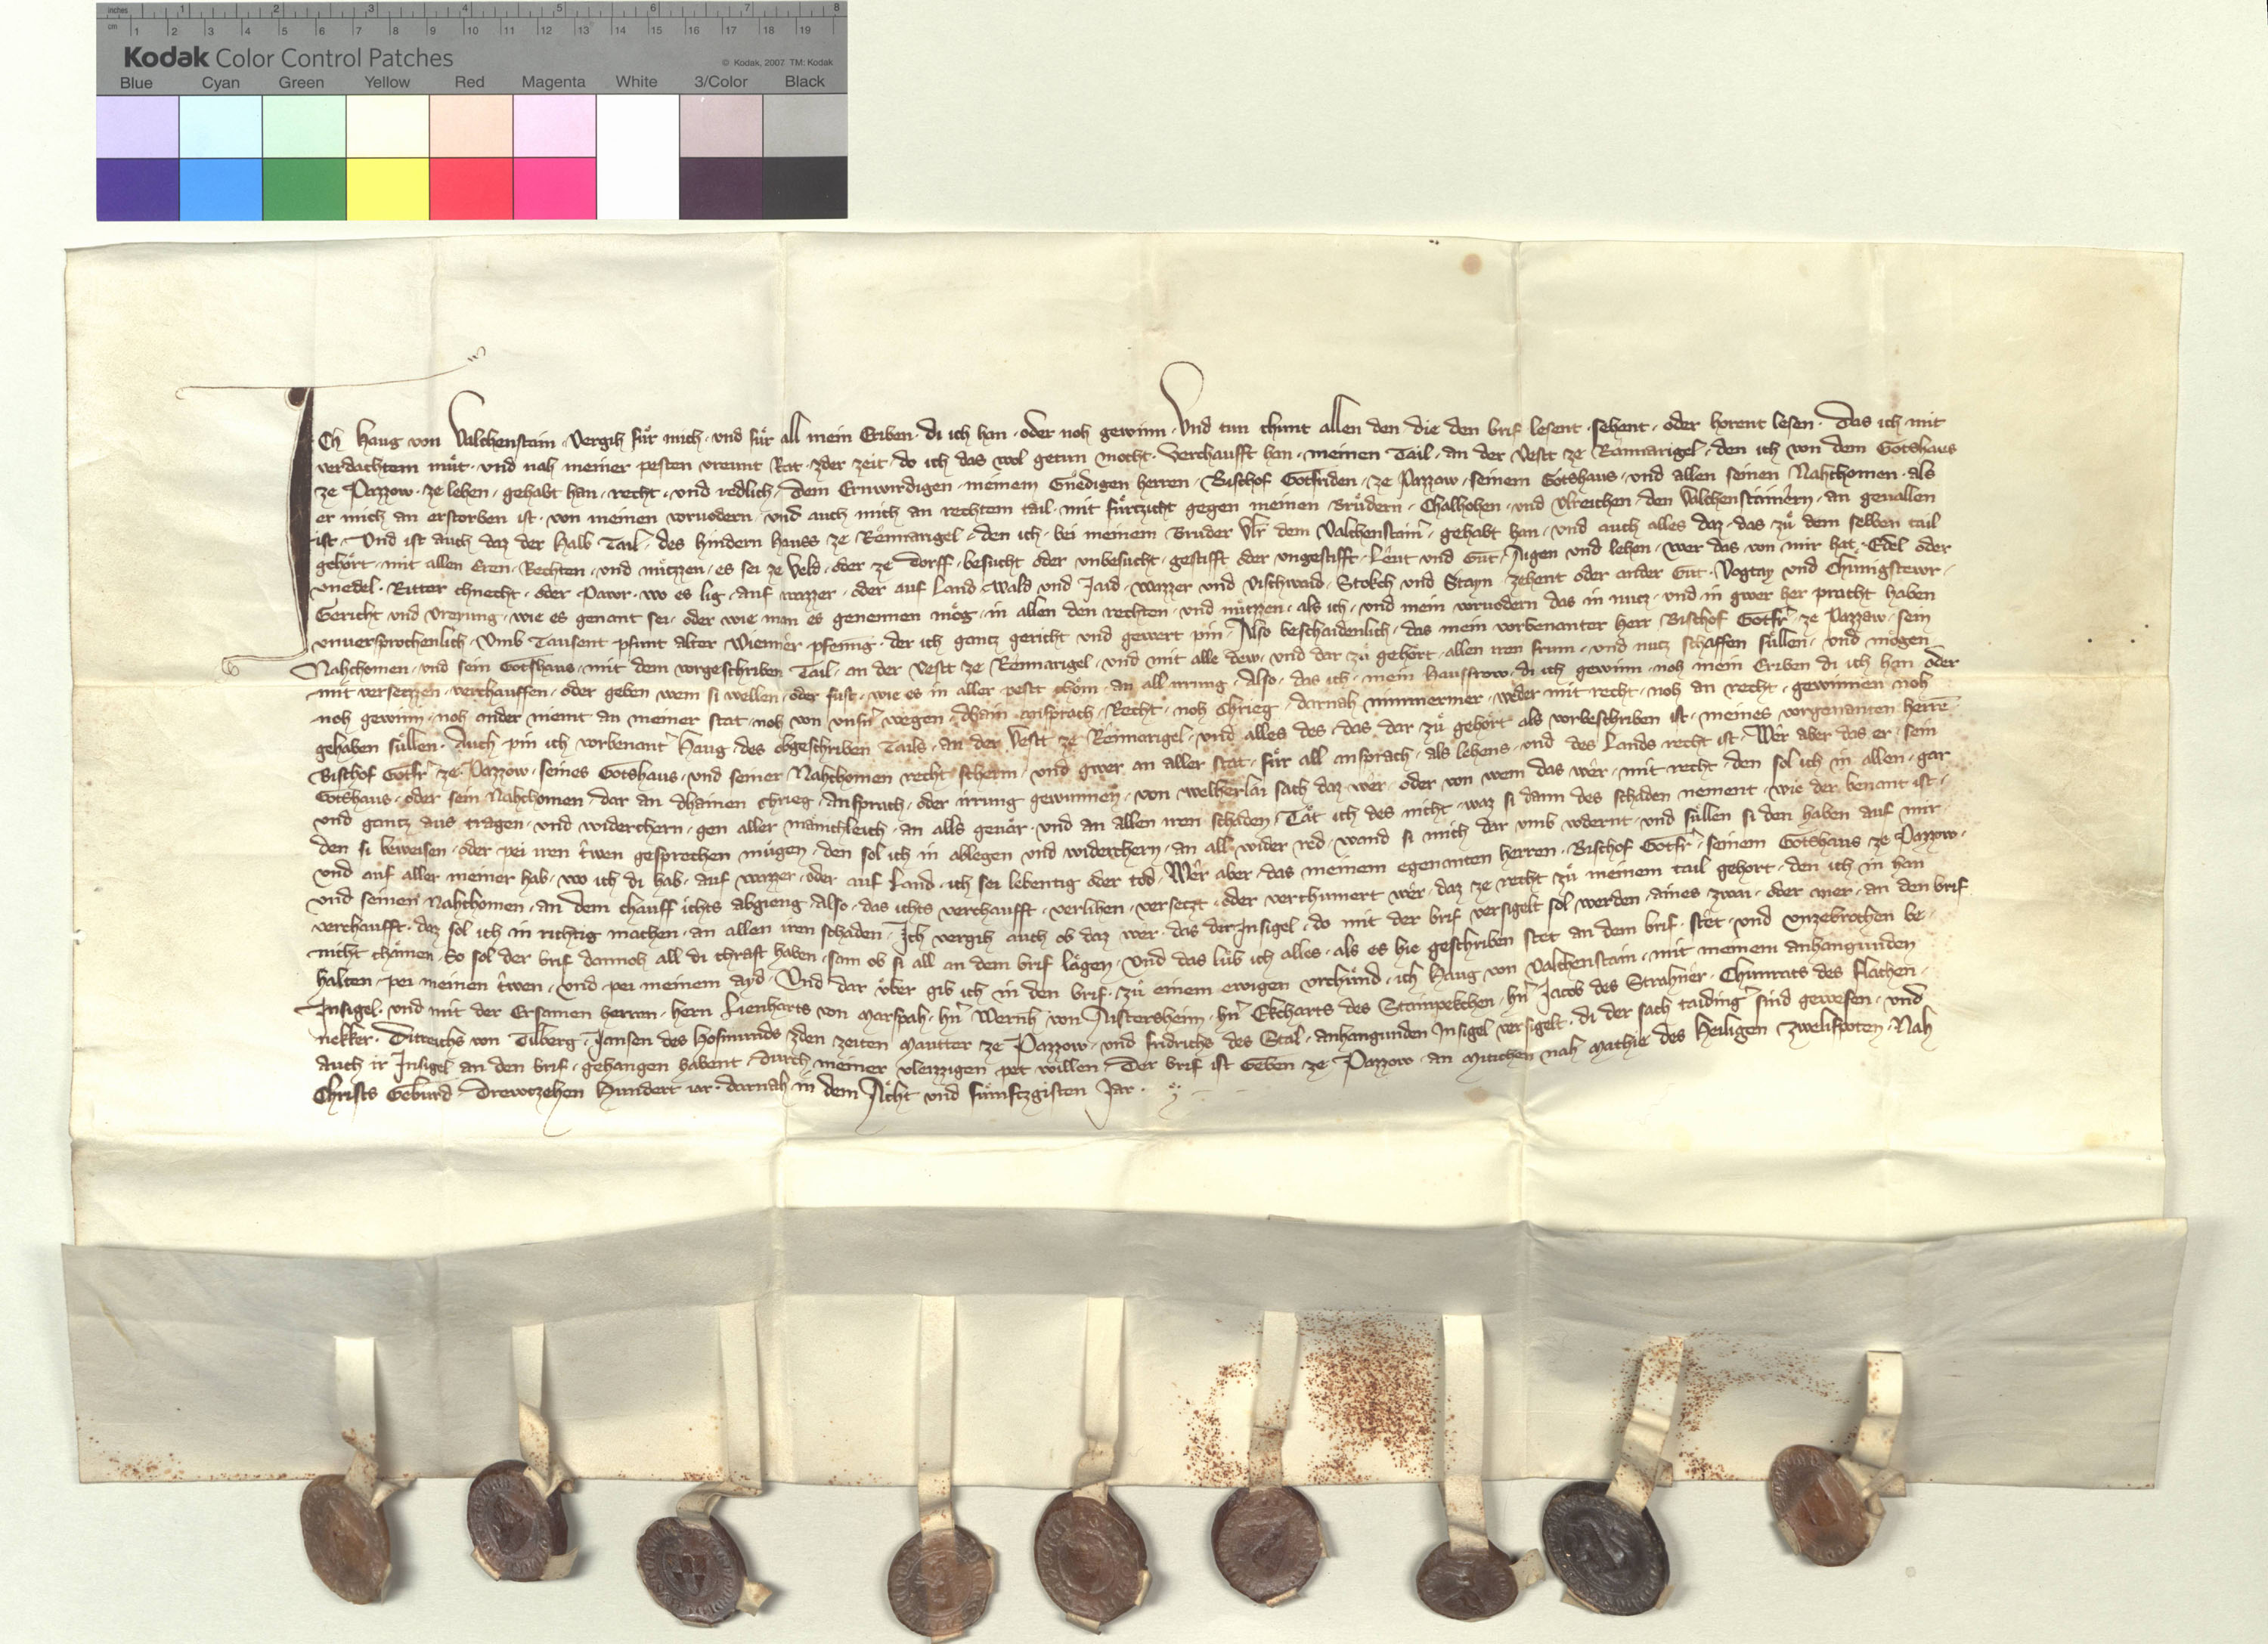 inches 1 2 3 4 5 6 7 8
cm 1 2 3 4 5 6 7 8 9 10 11 12 13 14 15 16 17 18 19
Kodak Color Control Patches © Kodak, 2007 TM: Kodak
Blue Cyan Green Yellow Red Magenta White 3/Color Black
Ich Haug von Valchenstain · Vergih für mich · und für all mein Erben · di ich han · oder noh gewinn · Und tun chunt allen den die den brif lesent · sehent · oder horent lesen · Das ich · mit
verdachtem müt · und nah meiner pesten vreunt Rat · zder zeit · do ich das wol getun mocht · verchaufft han · meinen Tail · an der Vestt ze Rennarigel · den ich von dem Gotshaus
ze Pazzow · ze lehen · gehabt han · recht · und redlich · dem Ernwirdigen · meinem Gnedigen herren · Bischof Gotfriden · ze Pazzaw · seinem Gotshaus · und allen seinen Nahchomen · als
er mich an erstorben ist · von meinen vorvodern · und auch mich an rechtem tail · mit fürtzicht gegen meinen Brüdern · Chalhohen · und Ulreichen · den Valchenstainern · an gevallen
ist · Und ist auch daz der Halb Tail · des hindern Hauss ze Rennarigel · den ich · bei meinem Bruder Ulr dem Valchenstainer · gehabt han · und auch alles daz · das zü dem selben tail
gehört · mit allen Eren · Rechten · und nützzen · es sei ze Veld · oder ze Dorff · besucht oder unbesucht · gestifft oder ungestifft · Leut und Gut · Aigen und lehen · wer das von mir hat · Edel oder
unedel · Ritter chnecht · oder Pawr · wo es lig · auf wazzer · oder auf Land · Wald und Jaid · wazzer und Vischwaid · Stokch und Stayn · zehent oder ander Gut · Vogtay und Chünigstewr ·
Gericht und Vrenung · wie es genant sei · oder wie man es genennen mög · in allen den rechten · und nützzen · als ich · und mein vorvodern das in nutz · und in gwer her pracht haben
unversprochenlich · Umb Tausent pfunt alter Wienner pfening · der ich gantz gericht und gewert pin · Also beschaidenlich · das mein vorbenanter herr Bischof Gotfr · ze Pazzaw · sein
Nahchomen · und sein Gotshaus · mit dem vorgeschriben Tail · an der Vestt ze Rennarigel · und mit alle dew · und dar zü gehört · allen iren frum · und nutz schaffen süllen · und mögen
mit versetzzen · verchauffen · oder geben wem si wellen · oder sust · wie es in aller pestt chöm · an all irrung · Also · das ich · mein hausfrow · di ich gewinn · noh mein Erben di ich han · oder
noh gewinn · noh ander niemt an meiner stat · noh von unsern wegen · dhain ansprach · Recht · noh chrieg · darnah nimmermer · weder mit recht · noh an recht · gewinnen noh
gehaben süllen · Auch pin ich vorbenant Haug · des obgeschriben Tails · an der Vestt ze Rennarigel · und alles des · das dar zü gehört als vorbeschriben ist · meines vorgenanten herren
Bischof Gotfr ze Pazzow · seines Gotshaus · und seiner Nahchomen recht scherm · und gwer an aller stat · für all ansprach · als lehens · und des Lands recht ist · Wer aber das er · sein
Gotshaus · oder sein Nahchomen · dar an dhainen chrieg · Ansprach · oder irrung gewunnen · von welherlai sach daz wer · oder von wem das wer · mit recht · den sol ich in allen · gar
und gantz aus tragen · und widerchern · gen aller mänichleich · an alls gevär · und an allen iren schaden · Tät ich des nicht · waz si dann des schaden nement · wie der benant ist ·
den si beweisen · oder pei iren trwen gesprechen mügen · den sol ich in ablegen und widerchern · an all wider red · wand si mich dar umb vodernt · und süllen si den haben auf mir
und auf aller meiner hab · wo ich di hab · auf wazzer · oder auf Land · ich sei lebentig oder tod · Wer aber · das meinem egenanten herren · Bischof Gotfr · seinem Gotshaus · ze Pazzow ·
und seinen Nahchomen · an dem chauff ichts abgieng · Also · das ichts verchaufft · verlihen · versetzt · oder verchumert wer · daz ze recht zü meinem tail gehört · den ich in han
verchaufft · daz sol ich in richtig machen · an allen iren schaden · Ich vergih auch ob daz wer · das der Insigel · do mit der brif versigelt sol werden · aines · zwai · oder mer · an den brif
nicht chämen · So sol der brif dannoh all di chraft haben · sam ob si all an dem brif lägen · Und das lüb ich alles · als es hie geschriben stet an dem brif · stet · und unzebrochen be
halten · pei meinen trwen · und · pei meinem ayd · Und dar über gib ich in den brif · zü einem ewigen urchünd · ich Haug von Valchenstain · mit meinem anhangunden
Insigel · und mit der Ersamen herren · hern Lienharts von Marspah · hern Wernh von Aistersheim · hern Ekcharts des Stainpekchen · hern Jacob des Strahner · Chunrats des Flachen
nekker · Ditreichs von Tilberg · Jansen des Hofmunds zden zeiten Mautter ze Pazzow · und Fridrichs des Stal · anhangunden Insigel versigelt · di der sach taiding sind gewesen · und
auch ir Insigel an den brif · gehangen habent · durch meiner vleizzigen pet willen · Der brif ist Geben ze Pazzow · an Mitichen nah Mathie des Heiligen zwelifpoten · Nah
Christs Geburd · Drewtzehen Hundert iar · darnah in dem Acht und fümftzgisten Jar ·